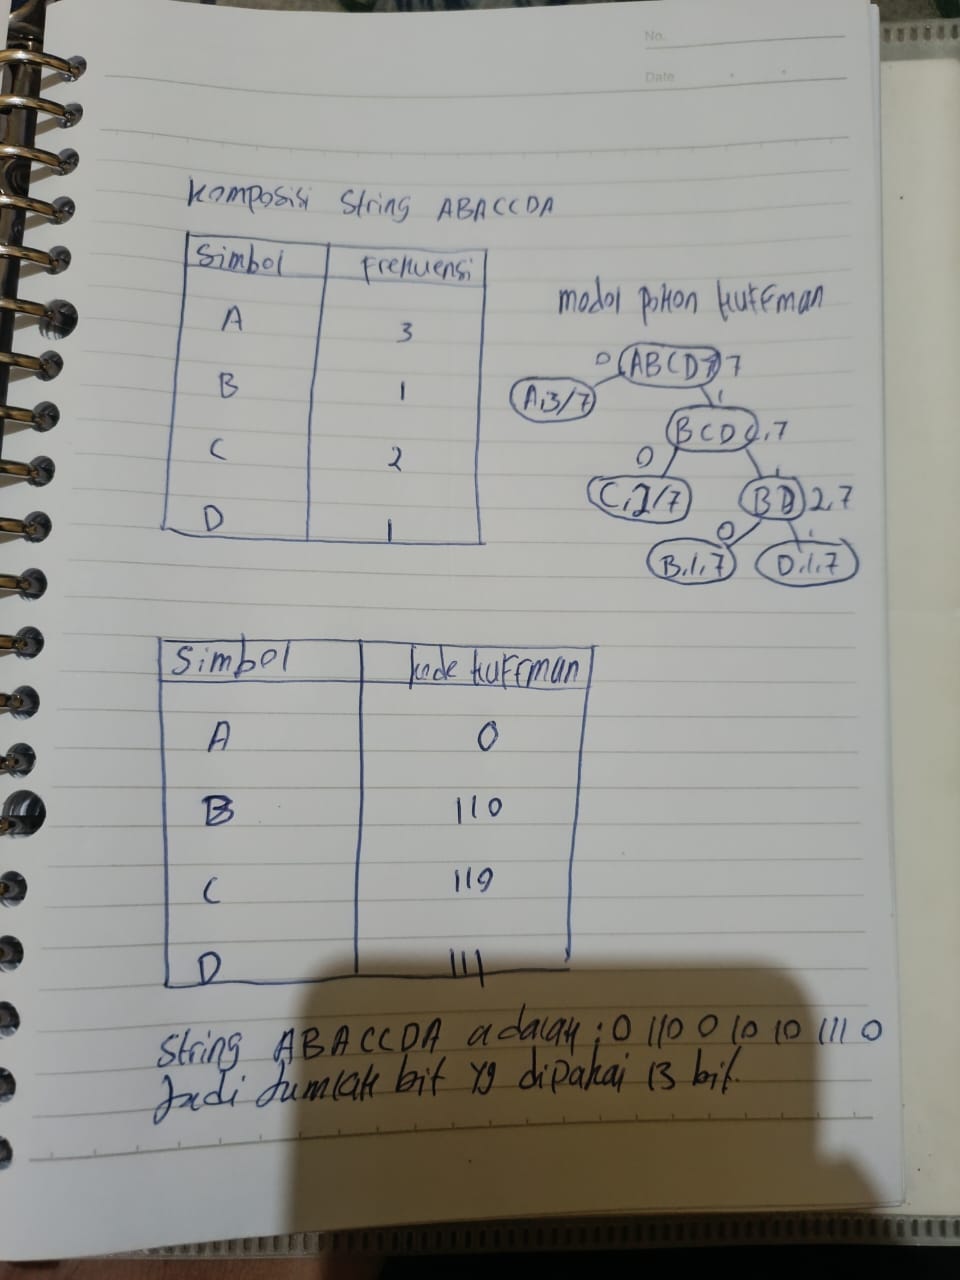 No.
Date
Komposisi String ABACCDA
Simbol Frekuensi
A 3
B 1
C 2
D 1
model pohon huffman
0 ABCD 7
A,3/7 1
BCD ,7
0 1
C,2/7 BD 2,7
0 1
B,1,7 D,1,7
Simbol kode huffman
A 0
B 110
C 110
D 111
String ABACCDA adalah : 0 110 0 10 10 111 0
Jadi Jumlah bit yg dipakai 13 bit.